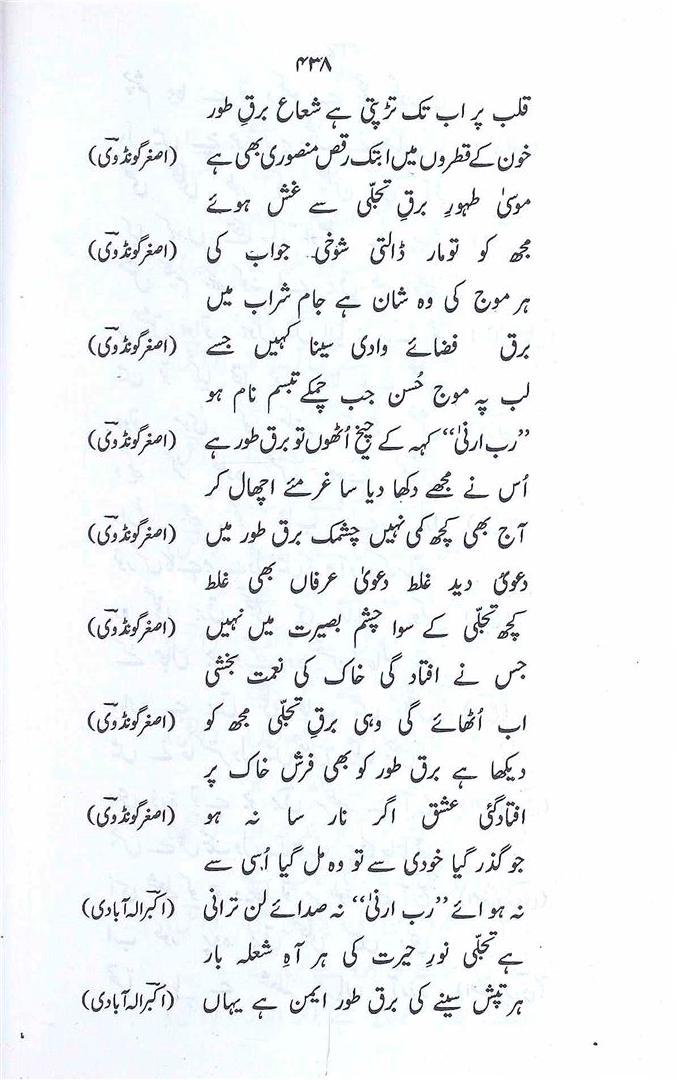 ۴۳۸
قلب پر اب تک تڑپتی ہے شعاع برقِ طور
خون کے قطروں میں ابتک رقص منصوری بھی ہے (اصغر گونڈوی)
موسیٰ طہورِ برقِ تجلّی سے غش ہوئے
مجھ کو تو مار ڈالتی شوخی جواب کی (اصغر گونڈوی)
ہر موج کی وہ شان ہے جام شراب میں
برق فضائے وادی سینا کہیں جسے (اصغر گونڈوی)
لب پہ موج حُسن جب چمکے تبسم نام ہو
”رب ارنیٰ“ کہہ کے چیخ اُٹھوں تو برق طور ہے (اصغر گونڈوی)
اُس نے مجھے دکھا دیا ساغر مئے اچھال کر
آج بھی کچھ کمی نہیں چشمک برق طور میں (اصغر گونڈوی)
دعویٔ دید غلط دعویٰ عرفاں بھی غلط
کچھ تجلّی کے سوا چشم بصیرت میں نہیں (اصغر گونڈوی)
جس نے افتاد گی خاک کی نعمت بخشی
اب اُٹھائے گی وہی برقِ تجلّی مجھ کو (اصغر گونڈوی)
دیکھا ہے برق طور کو بھی فرش خاک پر
افتادگئی عشق اگر نار سا نہ ہو (اصغر گونڈوی)
جو گذر گیا خودی سے تو وہ مل گیا اُسی سے
نہ ہوائے ”رب ارنیٰ“ نہ صدائے لن ترانی (اکبر الہ آبادی)
ہے تجلّی نورِ حیرت کی ہر آہِ شعلہ بار
ہر تپش سینے کی برق طور ایمن ہے یہاں (اکبر الہ آبادی)